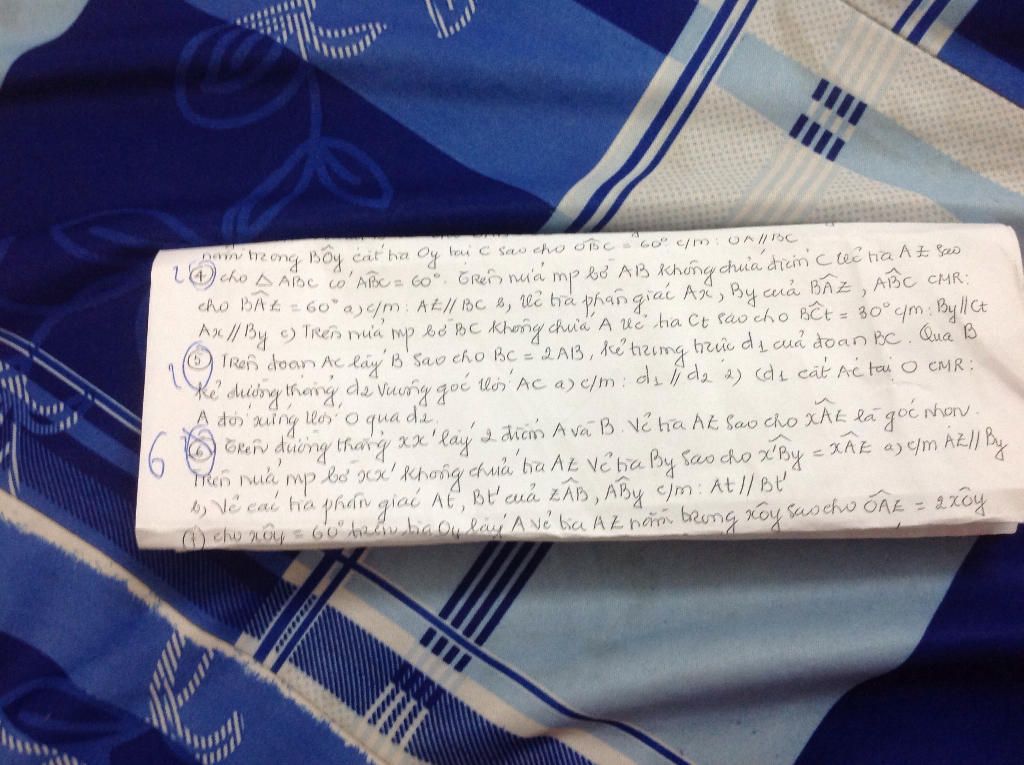 nằm trong BÔy cắt tia Oy tại C sao cho OBC = 60° c/m: OA//BC
2 (4) cho △ABC có ABC = 60°. Trên nửa mp bờ AB không chứa điểm C vẽ tia Az sao
cho BÂz = 60° a, c/m: Az//BC b, vẽ tia phân giác Ax, By của BÂz, ABC CMR:
Ax//By c) Trên nửa mp bờ BC không chứa A vẽ tia Ct sao cho BCt = 30° c/m: By//Ct
(5) Trên đoạn AC lấy B sao cho BC = 2AB, kẻ trung trực d1 của đoạn BC. Qua B
kẻ đường thẳng d2 vuông góc với AC a) c/m: d1 // d2 2) (d1 cắt AC tại O CMR:
A đối xứng với O qua d2.
6 (6) Trên đường thẳng xx' lấy 2 điểm A và B. Vẽ tia Az sao cho xÂz là góc nhọn.
Trên nửa mp bờ xx' không chứa tia Az vẽ tia By sao cho x'By = xÂz a, c/m Az//By
b, Vẽ các tia phân giác At, Bt' của zÂB, ABy c/m: At // Bt'
(7) cho xÔy = 60° trên tia Oy lấy A vẽ tia Az nằm trong xÔy sao cho OÂz = 2xÔy